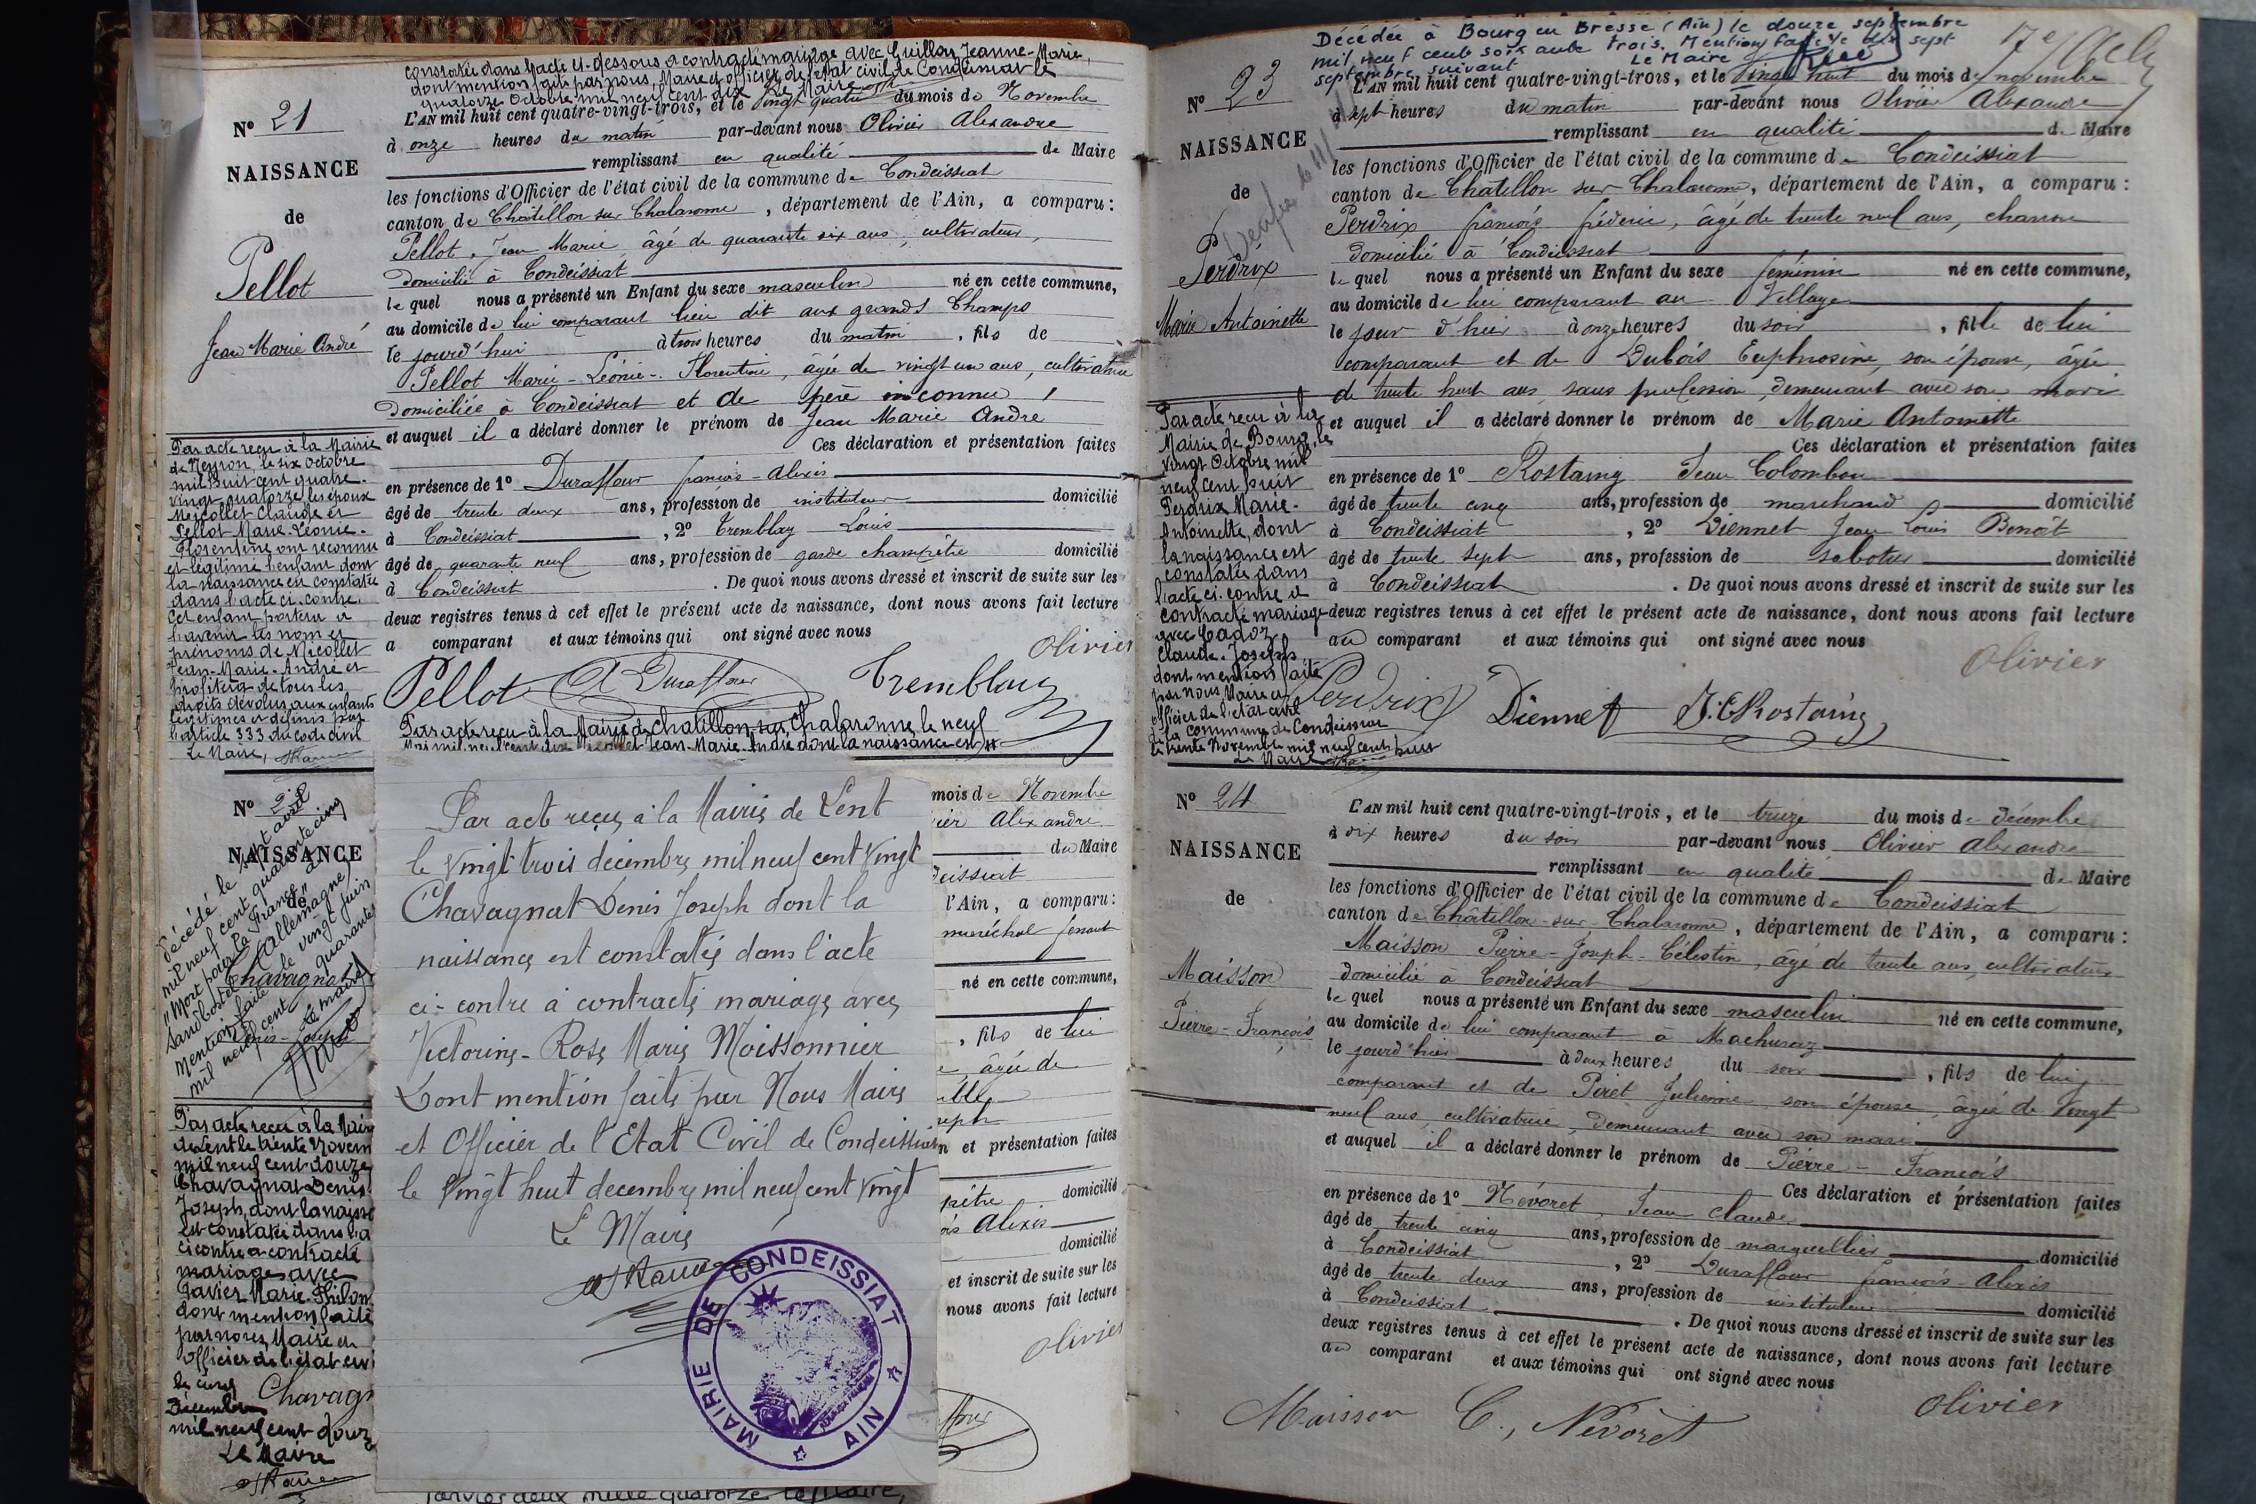 constatée dans l'acte ci-dessous a contracté mariage avec Guillon Jeanne-Marie,
dont mention faite par nous, Maire et officier de l'état civil de Condeissiat le
quatorze Octobre mil neuf cent dix Le Maire
N° 21
NAISSANCE
de
Pellot
Jean Marie André
L'AN mil huit cent quatre-vingt-trois, et le vingt quatre du mois de Novembre
à onze heures du matin par-devant nous Olivier Alexandre
remplissant en qualité de Maire
les fonctions d'Officier de l'état civil de la commune de Condeissiat
canton de Châtillon sur Chalaronne, département de l'Ain, a comparu :
Pellot, Jean Marie âgé de quarante six ans, cultivateur,
domicilié à Condeissiat
le quel nous a présenté un Enfant du sexe masculin né en cette commune,
au domicile de lui comparant lieu dit aux grands Champs
le jourd'hui à trois heures du matin, fils de
Pellot Marie-Léonie-Florentine, âgée de vingt un ans, cultivatrice
domiciliée à Condeissiat et de père inconnu
et auquel il a déclaré donner le prénom de Jean Marie André
Ces déclaration et présentation faites
en présence de 1° Duraffour françois-alexis
âgé de trente deux ans, profession de instituteur domicilié
à Condeissiat, 2° Tremblay Louis
âgé de quarante neuf ans, profession de garde champêtre domicilié
à Condeissiat. De quoi nous avons dressé et inscrit de suite sur les
deux registres tenus à cet effet le présent acte de naissance, dont nous avons fait lecture
a comparant et aux témoins qui ont signé avec nous
Olivier
Pellot A Duraffour Tremblay
Par acte reçu à la Mairie de Chatillon sur Chalaronne le neuf
Mai mil neuf cent dix Micollet Jean-Marie-André dont la naissance est
Par acte reçu à la Mairie
de Neyron, le six Octobre
mil huit cent quatre-
vingt quatorze les époux
Micollet Claude et
Pellot Marie-Léonie-
Florentine ont reconnu
et légitimé l'enfant dont
la naissance est constatée
dans l'acte ci-contre.
Cet enfant portera à
l'avenir les nom et
prénoms de Micollet
Jean-Marie-André et
profitera de tous les
droits dévolus aux enfants
légitimes et définis par
l'article 333 du code civil
Le Maire,
N° 22
NAISSANCE
de
Chavagnat
Denis-Joseph
Décédé le sept avril
mil neuf cent quarante cinq
"Mort pour la France" à
Sandbostel (Allemagne)
Mention faite le vingt juin
mil neuf cent quarante
Le maire
Par acte reçu à la Mairie
de Lent le trente Novem
mil neuf cent douze
Chavagnat Denis
Joseph, dont la naiss
est constatée dans l'a
ci contre a contracté
mariage avec
Gavier Marie-Philom
dont mention faite
par nous, Maire et
officier de l'état civi
le cinq
Décembre
mil neuf cent douz
Le Maire
Chavagn
Par act reçus à la Mairie de Lent
le vingt-trois décembre mil neuf cent vingt
Chavagnat Denis Joseph dont la
naissance est constatés dans l'acte
ci-contre à contracté mariage avec
Victorine-Rose Marie Moissonnier
Dont mention faite par Nous Maire
et Officier de l'Etat Civil de Condeissiat
le vingt huit decembre mil neuf cent vingt
Le Maire
MAIRIE DE CONDEISSIAT
AIN
mois de Novembre
ier Alexandre
de Maire
deissiat
l'Ain, a comparu :
maréchal ferrant
né en cette commune,
, fils de lui
e, âgée de
seph
n et présentation faites
pêtre domicilié
is Alexis
domicilié
et inscrit de suite sur les
nous avons fait lecture
Olivier
janvier deux mille quatorze Le Maire,
Décédée à Bourg en Bresse (Ain) le douze septembre
mil neuf cent soixante trois. Mention faite le dix sept
septembre suivant Le Maire
N° 23
NAISSANCE
de
Perdrix
Marie Antoinette
L'AN mil huit cent quatre-vingt-trois, et le vingt huit du mois de novembre
à sept heures du matin par-devant nous Olivier Alexandre
remplissant en qualité de Maire
les fonctions d'Officier de l'état civil de la commune de Condeissiat
canton de Châtillon sur Chalaronne, département de l'Ain, a comparu :
Perdrix françois fréderic, âgé de trente neuf ans, charron
domicilié à Condeissiat
le quel nous a présenté un Enfant du sexe féminin né en cette commune,
au domicile de lui comparant au Village
le jour d'hier à onze heures du soir, fille de lui
comparant et de Dubois Euphrosine, son épouse, âgée
de trente huit ans, sans profession, demeurant avec son mari
et auquel il a déclaré donner le prénom de Marie Antoinette
Ces déclaration et présentation faites
en présence de 1° Rostaing Jean Colomban
âgé de trente cinq ans, profession de marchand domicilié
à Condeissiat, 2° Diennet Jean Louis Benoît
âgé de trente sept ans, profession de sabotier domicilié
à Condeissiat. De quoi nous avons dressé et inscrit de suite sur les
deux registres tenus à cet effet le présent acte de naissance, dont nous avons fait lecture
au comparant et aux témoins qui ont signé avec nous
Olivier
Perdrix Diennet J.C Rostaing
Par acte reçu à la
Mairie de Bourg, le
vingt Octobre mil
neuf cent huit
Perdrix Marie-
Antoinette, dont
la naissance est
constatée dans
l'acte ci-contre a
contracté mariage
avec Cadoz
Claude-Joseph
dont mention faite
par nous, Maire et
officier de l'état civil
de la commune de Condeissiat
le trente Novembre mil neuf cent huit
Le Maire
N° 24
NAISSANCE
de
Maisson
Pierre-François
L'AN mil huit cent quatre-vingt-trois, et le treize du mois de décembre
à dix heures du soir par-devant nous Olivier Alexandre
remplissant en qualité de Maire
les fonctions d'Officier de l'état civil de la commune de Condeissiat
canton de Châtillon-sur-Chalaronne, département de l'Ain, a comparu :
Maisson Pierre-Joseph-Célestin, âgé de trente ans, cultivateur
domicilié à Condeissiat
le quel nous a présenté un Enfant du sexe masculin né en cette commune,
au domicile de lui comparant à Machuraz
le jourd'hui à deux heures du soir, fils de lui
comparant et de Piret Julienne son épouse, âgée de vingt
neuf ans, cultivatrice, demeurant avec son mari
et auquel il a déclaré donner le prénom de Pierre-François
Ces déclaration et présentation faites
en présence de 1° Névoret, Jean Claude
âgé de trente cinq ans, profession de marguillier domicilié
à Condeissiat, 2° Duraffour françois-Alexis
âgé de trente deux ans, profession de instituteur domicilié
à Condeissiat. De quoi nous avons dressé et inscrit de suite sur les
deux registres tenus à cet effet le présent acte de naissance, dont nous avons fait lecture
au comparant et aux témoins qui ont signé avec nous
Olivier
Maisson C., Névoret